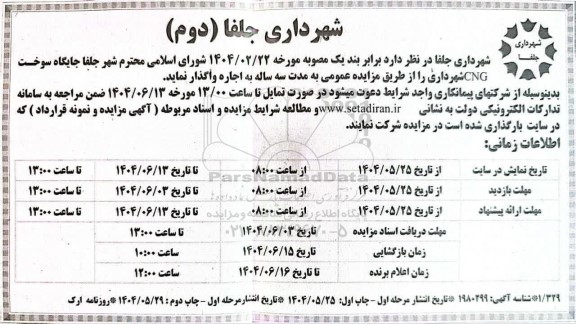 شهرداری جلفا (دوم)
شهرداری
جلفا
شهرداری جلفا در نظر دارد برابر بند یک مصوبه مورخه ۱۴۰۴/۰۲/۲۲ شورای اسلامی محترم شهر جلفا جایگاه سوخت
CNGشهرداری را از طریق مزایده عمومی به مدت سه ساله به اجاره واگذار نماید.
بدینوسیله از شرکتهای پیمانکاری واجد شرایط دعوت میشود در صورت تمایل تا ساعت ۱۳/۰۰ مورخه ۱۴۰۴/۰۶/۱۳ ضمن مراجعه به سامانه
تدارکات الکترونیکی دولت به نشانی www.setadiran.irو مطالعه شرایط مزایده و اسناد مربوطه ( آگهی مزایده و نمونه قرارداد ) که
در سایت بارگذاری شده است در مزایده شرکت نمایند.
اطلاعات زمانی:
تاریخ نمایش در سایت از تاریخ ۱۴۰۴/۰۵/۲۵ از ساعت ۰۸:۰۰ تا تاریخ ۱۴۰۴/۰۶/۱۳ تا ساعت ۱۳:۰۰
مهلت بازدید از تاریخ ۱۴۰۴/۰۵/۲۵ از ساعت ۰۸:۰۰ تا تاریخ ۱۴۰۴/۰۶/۰۳ تا ساعت ۱۳:۰۰
مهلت ارائه پیشنهاد از تاریخ ۱۴۰۴/۰۵/۲۵ از ساعت ۰۸:۰۰ تا تاریخ ۱۴۰۴/۰۶/۱۳ تا ساعت ۱۳:۰۰
مهلت دریافت اسناد مزایده تاریخ ۱۴۰۴/۰۶/۰۳ تا ساعت ۱۳:۰۰
زمان بازگشایی تاریخ ۱۴۰۴/۰۶/۱۵ ساعت ۱۰:۰۰
زمان اعلام برنده تا تاریخ ۱۴۰۴/۰۶/۱۶ ساعت ۱۲:۰۰
۱/۳۲۹*شناسه آگهی: ۱۹۸۰۲۹۹ *تاریخ انتشار مرحله اول - چاپ اول: ۱۴۰۴/۰۵/۲۵ *تاریخ انتشارمرحله اول - چاپ دوم : ۱۴۰۴/۰۵/۲۹ *روزنامه ارک